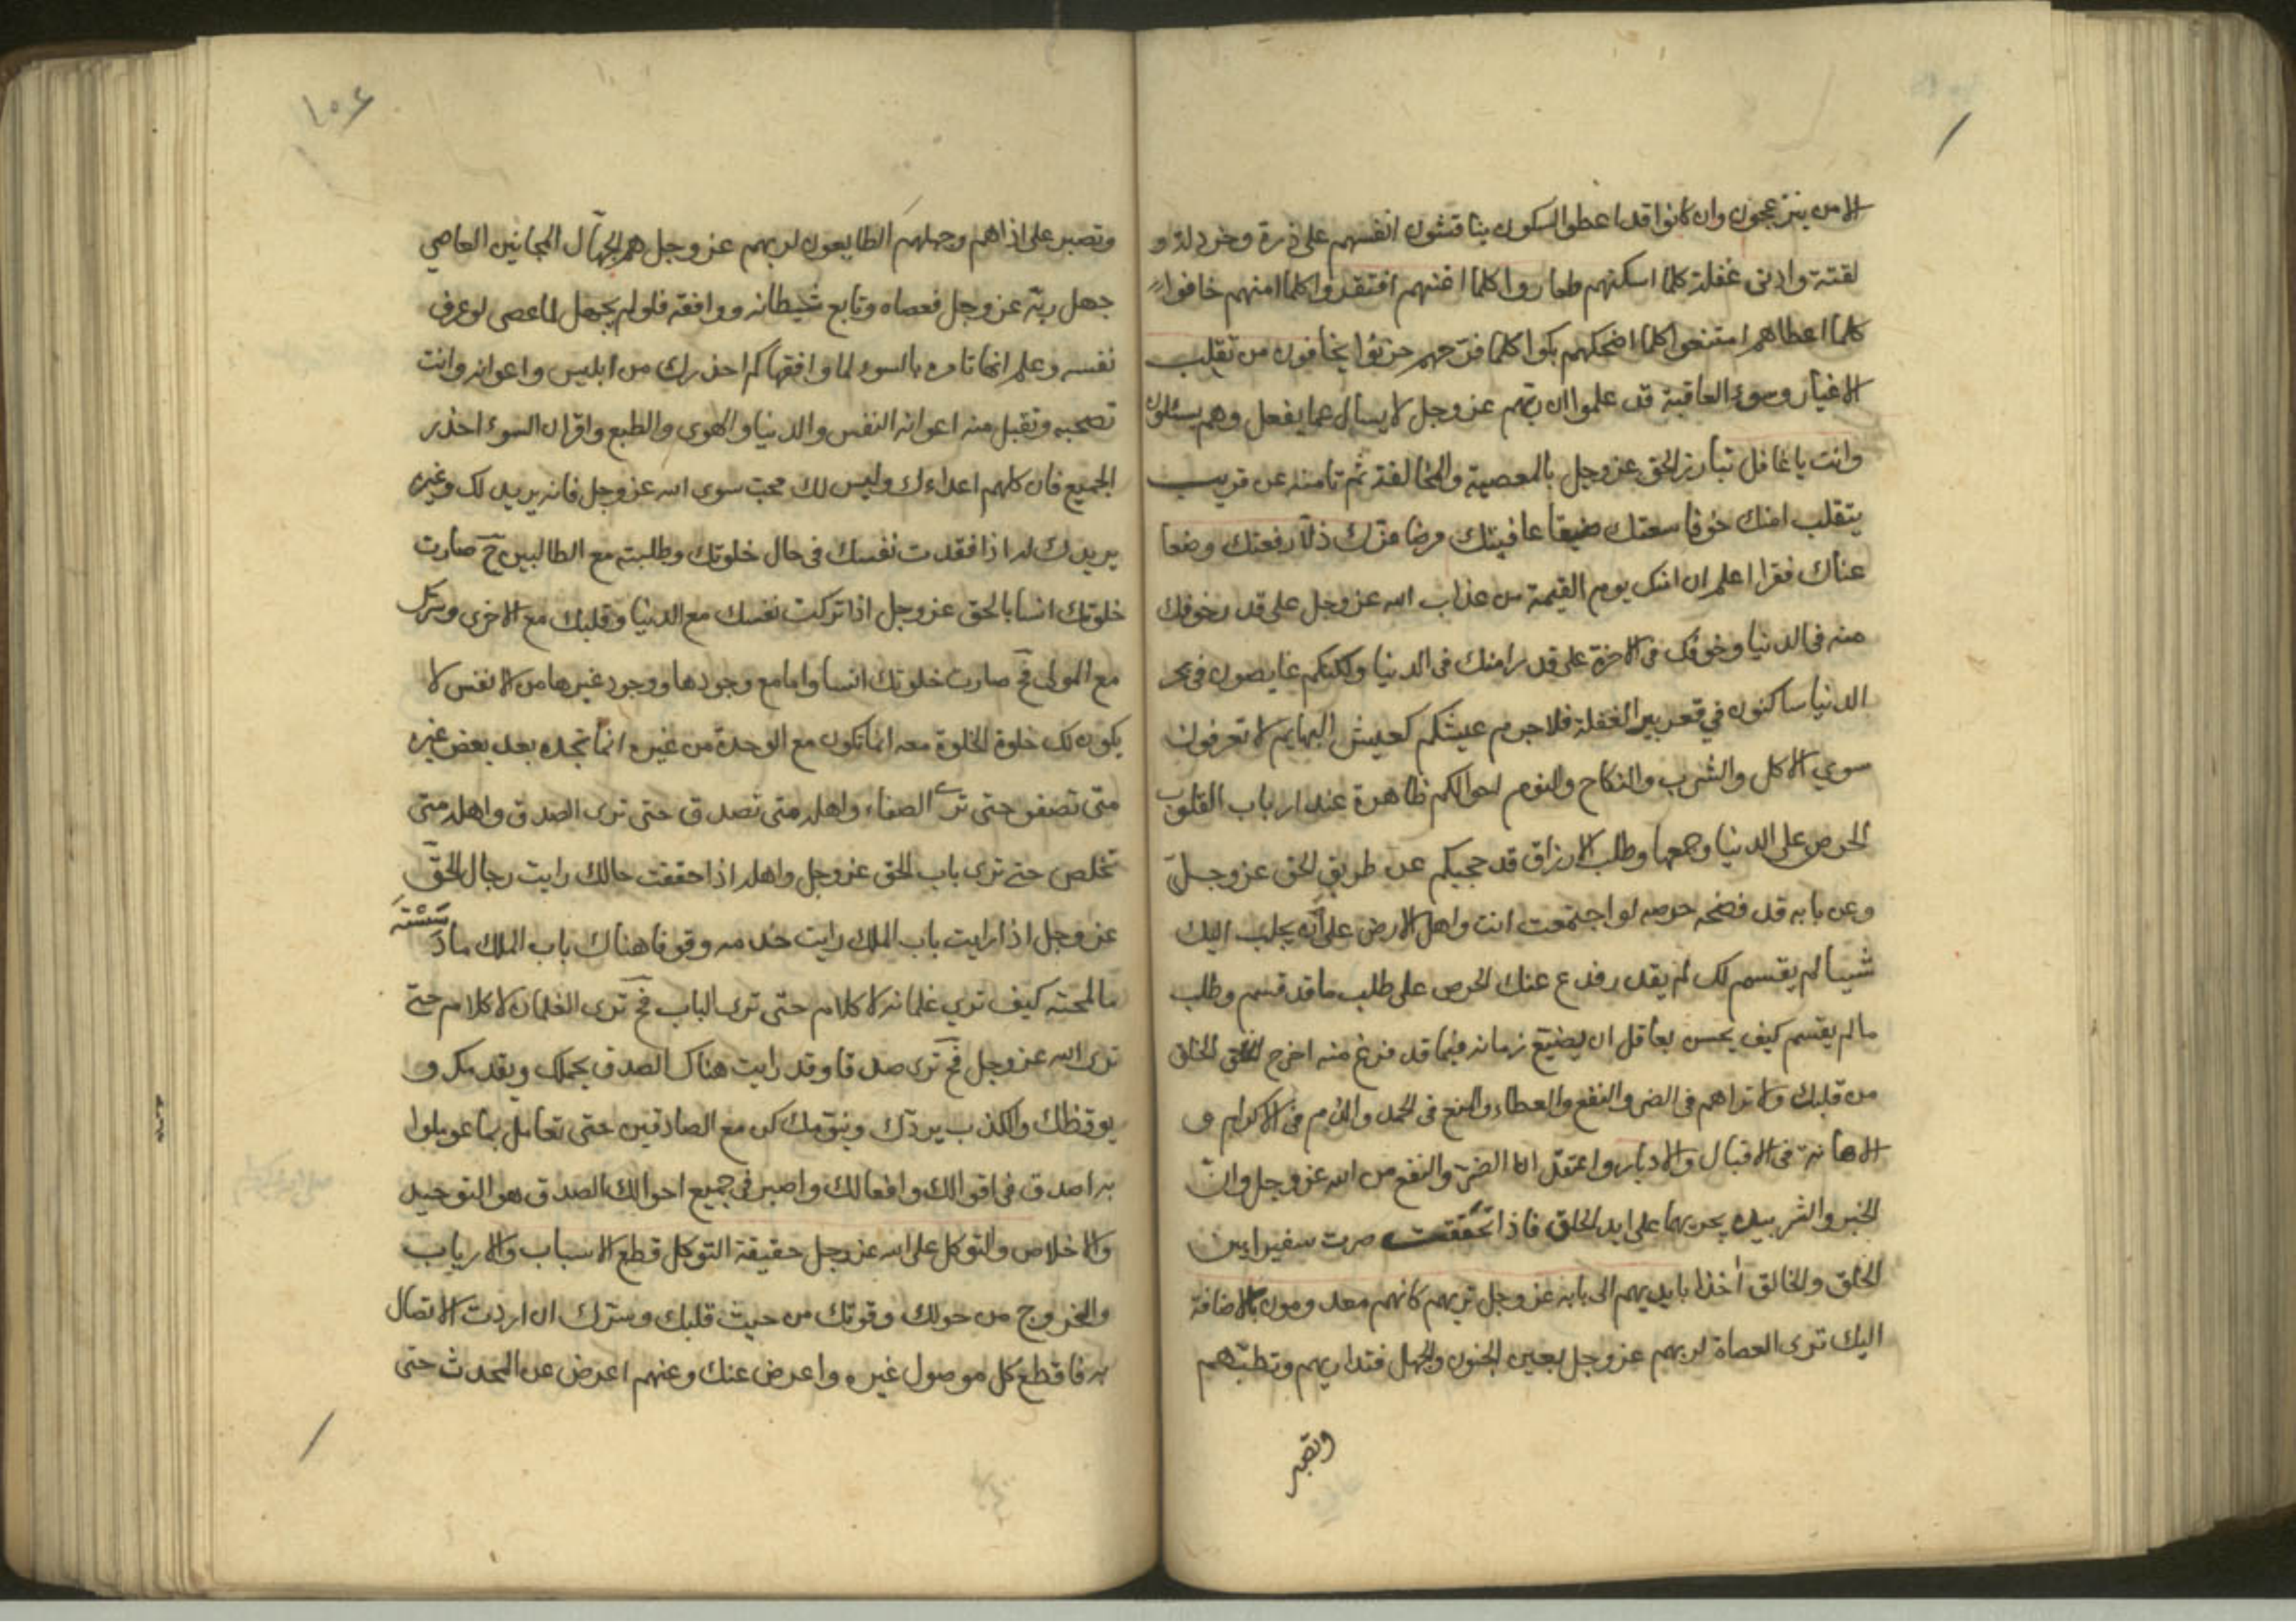 الامن ينزعجون وان كانوا قد اعطوا السكون يناقشون انفسهم على ذرة وخردلة و
لقتة وادنى غفلة كلما اسكنهم طاروا كلما اغنهم افتقدوا كلما امنهم خافوا
كلما اعطاهم امتنعوا كلما اضحكهم بكوا كلما فرحهم حزنوا يخافون من تقلب
الاغيار وسوء العاقبة قد علموا ان ربهم عز وجل لا يسال عما يفعل وهم يسئلون
وانت يا غافل تبارز الحق عز وجل بالمعصية والمخالفة ثم تامنه عن قريب
يتقلب امنك خوفا سعتك ضيقا عافيتك مرضا عزك ذلا رفعتك وضعا
غناك فقرا اعلم ان امنك يوم القيمة من عذاب الله عز وجل على قدر خوفك
منه في الدنيا وخوفك في الاخرة على قدر امنك في الدنيا ولكنكم غايصون في بحر
الدنيا ساكنون في قعر بير الغفلة فلا جرم عيشكم كعيش البهايم لا تعرفون
سوي الاكل والشرب والنكاح والنوم احوالكم ظاهرة عند ارباب القلوب
الحرص على الدنيا وجمعها وطلب الارزاق قد حجبكم عن طريق الحق عز وجل
وعن بابه قد فضحه حرصه لو اجتمعت انت واهل الارض على انه يجلب اليك
شيا لم يقسم لك لم يقدر فدع عنك الحرص على طلب ما قد قسم وطلب
ما لم يقسم كيف يحسن بعاقل ان يضيع زمانه فيما قد فرغ منه اخرج الخلق
من قلبك ولا تراهم في الضر والنفع والعطاء والمنع في الحمد والذم في الاكرام و
الاهانة في الاقبال والادبار واعتقد ان الضر والنفع من الله عز وجل وان
الخير والشر بيده يجريهما على ايد الخلق فاذا تحققت صرت سفيرا بين
الخلق والخالق اخذا بايديهم الى بابه عز وجل تريهم كانهم معدومون بالاضافة
اليك ترى العصاة لربهم عز وجل بعين الجنون والجهل فتداريهم وتطبهم
وتصبر
١٥٤
وتصبر على اذاهم وجهلهم الطايعون لربهم عز وجل هم الجهال المجانين العاصي
جهل ربه عز وجل فعصاه وتابع شيطانه ووافقه فلو لم يجهل لما عصى لو عرف
نفسه وعلم انها تامره بالسوء لما وافقها كم احذرك من ابليس واعوانه وانت
تصحبه وتقبل منه اعوانه النفس والدنيا والهوى والطبع واقران السوء احذر
الجميع فان كلهم اعداءك وليس لك محب سوى الله عز وجل فانه يريدك لك وغيره
يريدك له اذا فقدت نفسك في حال خلوتك وطلبته مع الطالبين ح صارت
خلوتك انسا بالحق عز وجل اذا تركت نفسك مع الدنيا وقلبك مع الاخرى وسرك
مع المولى فح صارت خلوتك انسا واما مع وجودها ووجود غيرها من الانفس لا
يكون لك خلوة الخلوة معه انما تكون مع الوحدة من غيره انما تجده بعد بعض غيره
متى تصفو حتى ترى الصفاء واهله متى تصدق حتى ترى الصدق واهله متى
تخلص حتى ترى باب الحق عز وجل واهله اذا حققت حالك رايت رجال الحق
عز وجل اذا رايت باب الملك رايت خدمه وقوفا هناك باب الملك ما
ما لمحته كيف تري غلمانه لا كلام حتى ترى الباب فح ترى الغلمان لا كلام حتى
ترى الله عز وجل فح ترى صدقا وقد رايت هناك الصدق يحملك ويقدمك و
يوقظك والكذب يردك وينومك كن مع الصادقين حتى تعامل بما عوملوا
به اصدق في اقوالك وافعالك واصبر في جميع احوالك الصدق هو التوحيد
والاخلاص والتوكل على الله عز وجل حقيقة التوكل قطع الاسباب والارباب
والخروج من حولك وقوتك من حيث قلبك وسرك ان اردت الاتصال
به فاقطع كل موصول غيره واعرض عنك وعنهم اعرض عن المحدث حتى